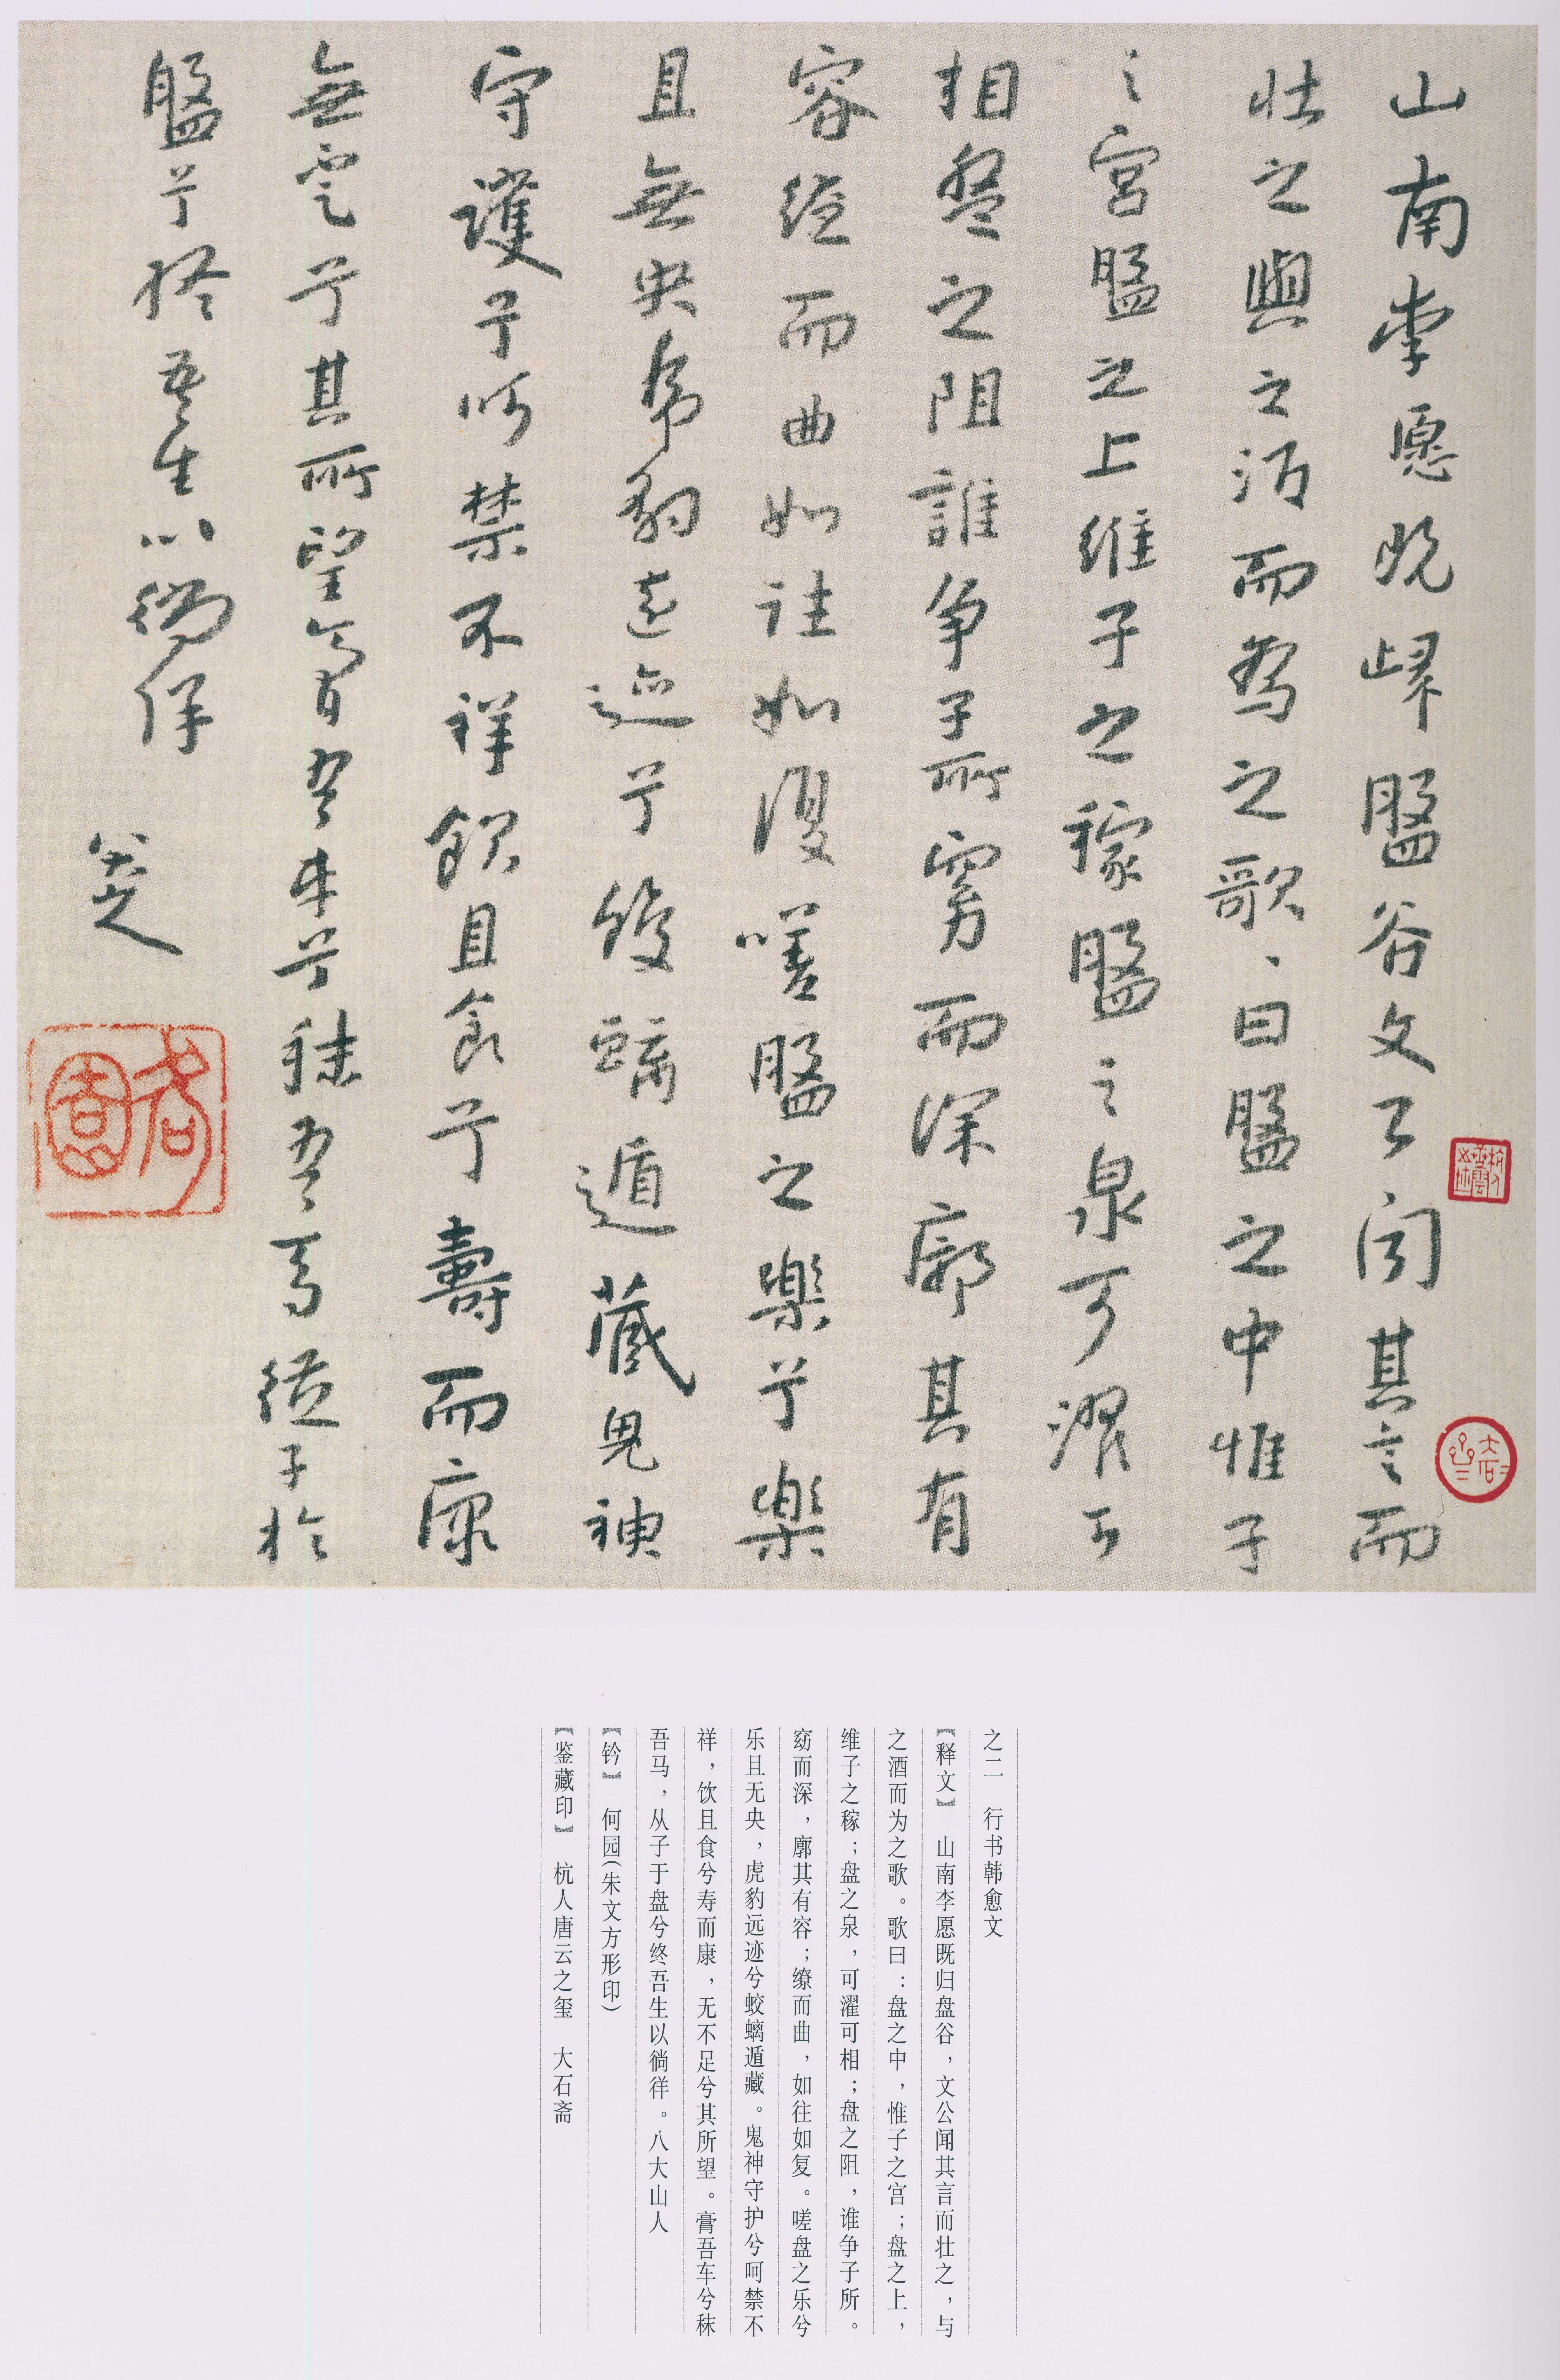 山南李愿既歸盤谷文公聞其言而
壯之與之酒而為之歌、曰盤之中惟子
之宮盤之上維子之稼盤之泉可濯可
相盤之阻誰爭子所窈而深廓其有
容繚而曲如往如復嗟盤之樂兮樂
且無央虎豹遠迹兮蛟螭遁藏鬼神
守護兮呵禁不祥飲且食兮壽而康
無不足兮其所望膏吾車兮秣吾馬從子於
盤兮終吾生以徜徉
八大山人
何園
之二 行书韩愈文
【释文】 山南李愿既归盘谷，文公闻其言而壮之，与
之酒而为之歌。歌曰：盘之中，惟子之宫；盘之上，
维子之稼；盘之泉，可濯可相；盘之阻，谁争子所。
窈而深，廓其有容；缭而曲，如往如复。嗟盘之乐兮
乐且无央，虎豹远迹兮蛟螭遁藏。鬼神守护兮呵禁不
祥，饮且食兮寿而康，无不足兮其所望。膏吾车兮秣
吾马，从子于盘兮终吾生以徜徉。八大山人
【钤】 何园（朱文方形印）
【鉴藏印】 杭人唐云之玺 大石斋